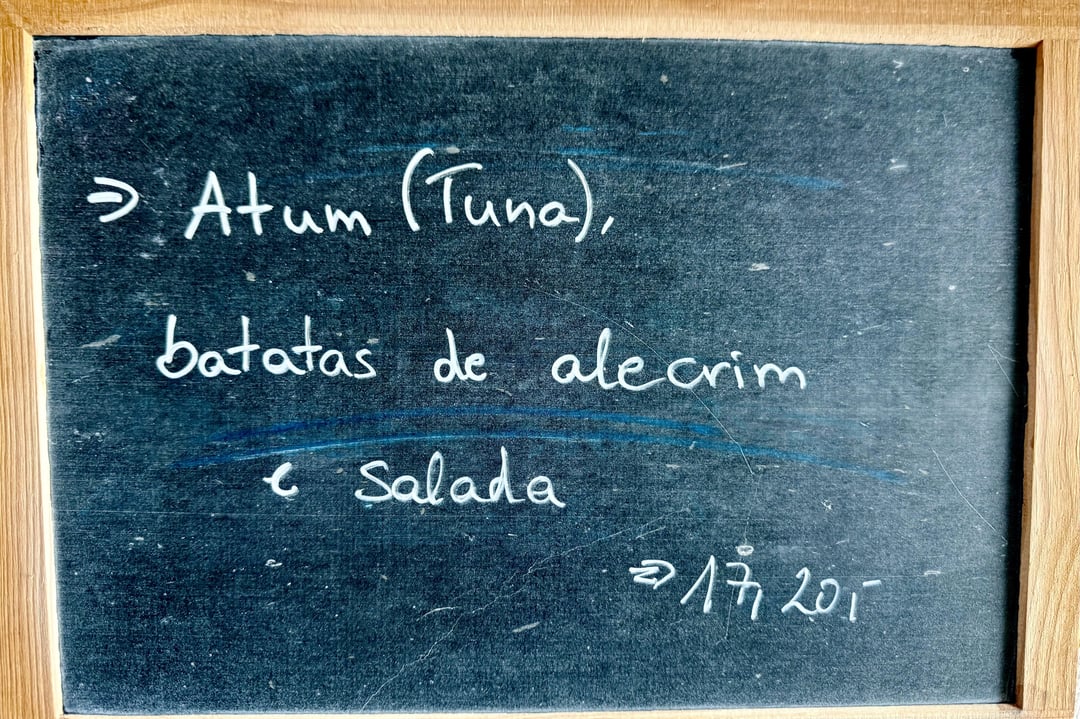 ⇒ Atum (Tuna),
batatas de alecrim
e Salada
⇒ 17,20,-